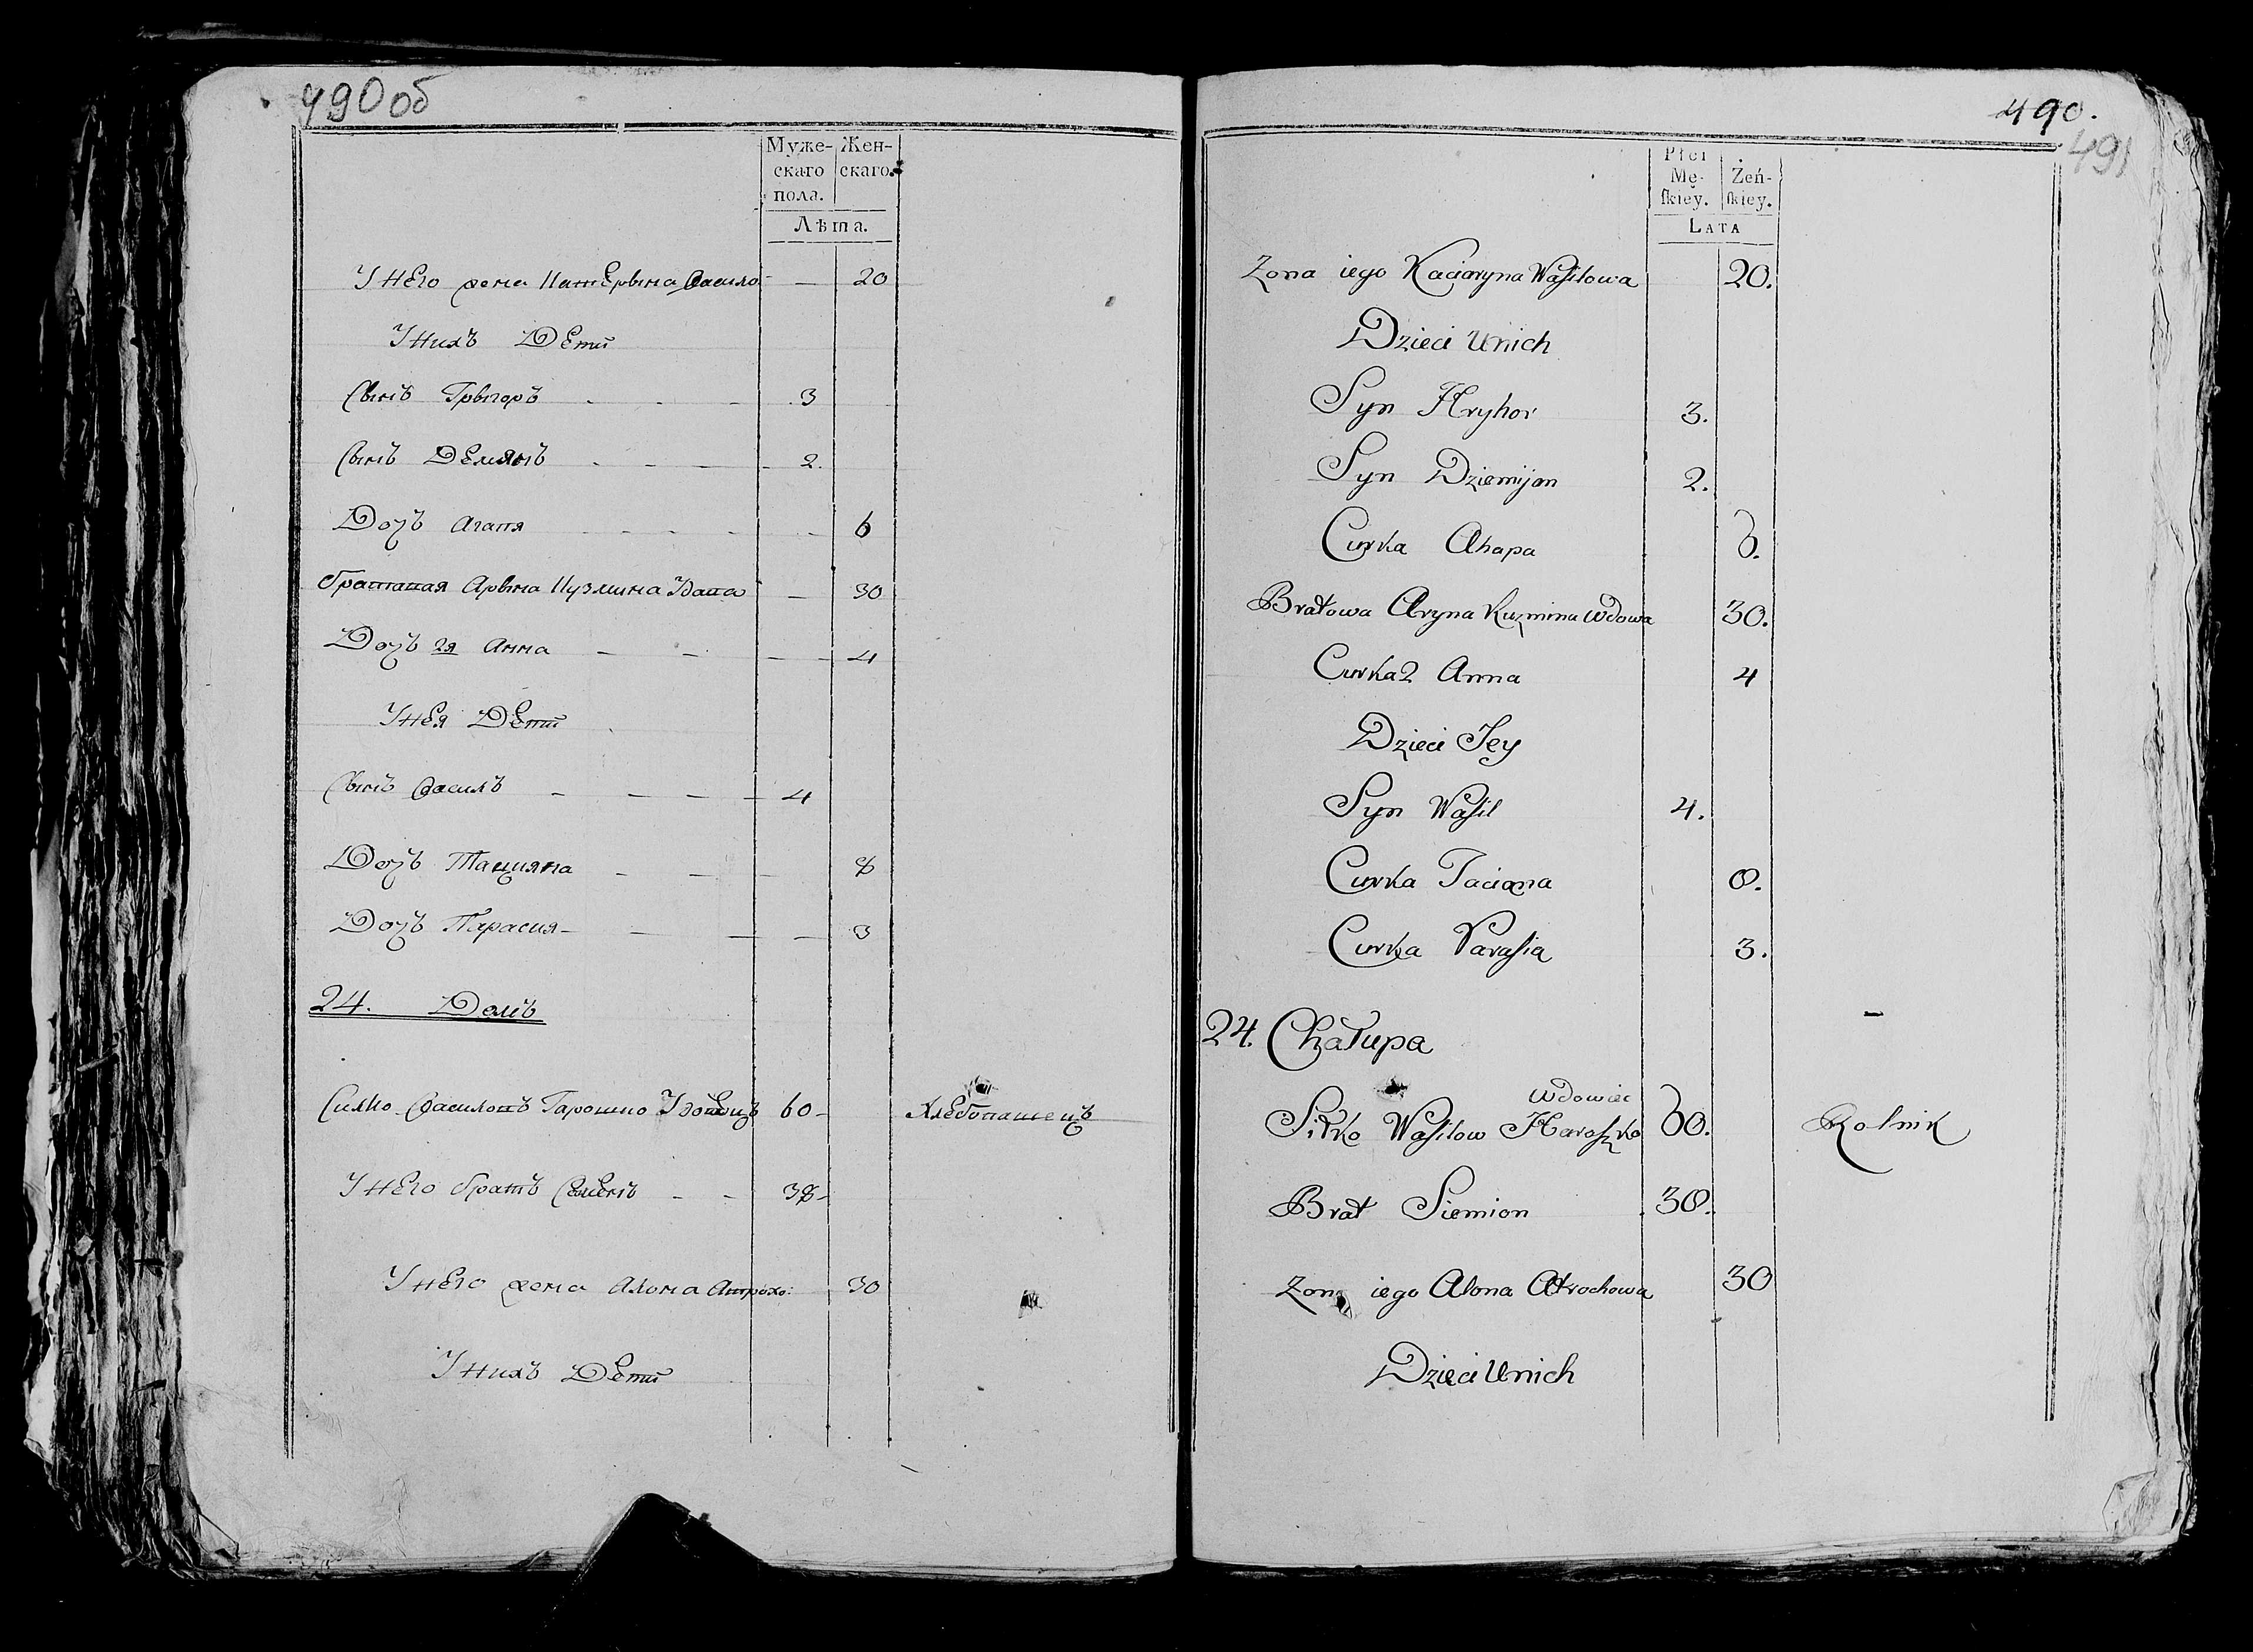 490об
Муже-
скаго
пола.
Жен-
скаго.
Лѣта.
У него жена Катерына Васило. — 20
У нихъ Дети
Сынъ Грыгоръ 3
Сынъ Демянъ 2.
Дочь Агапя 6
братавая Арына Кузмина Удава — 30
Дочь 2я Анна 4
У нея Дети
Сынъ Василь 4
Дочь Тацияна 8
Дочь Парасия 3
24. Домъ
Силко Василовъ Гарошко Удовецъ 60 Хлебопашецъ
У него братъ Семенъ 38
У него жена Алона Атрохо: 30
У нихъ Дети
490.
491
Płci
Mę-
ſkiey.
Żeń-
ſkiey.
LATA
Zona iego Kaciaryna Waſilowa 20.
Dzieci Unich
Syn Hryhor 3.
Syn Dziemijan 2.
Curka Ahapa 6.
Bratowa Aryna Kuzmina Wdowa 30.
Curka 2 Anna 4
Dzieci Jey
Syn Waſil 4.
Curka Taciana 8.
Curka Paraſia 3.
24. Chałupa
Wdowiec
Siłko Waſilow Haroſzko 60. Rolnik
Brat Siemion 38.
Zona iego Alona Atrochowa 30
Dzieci Unich